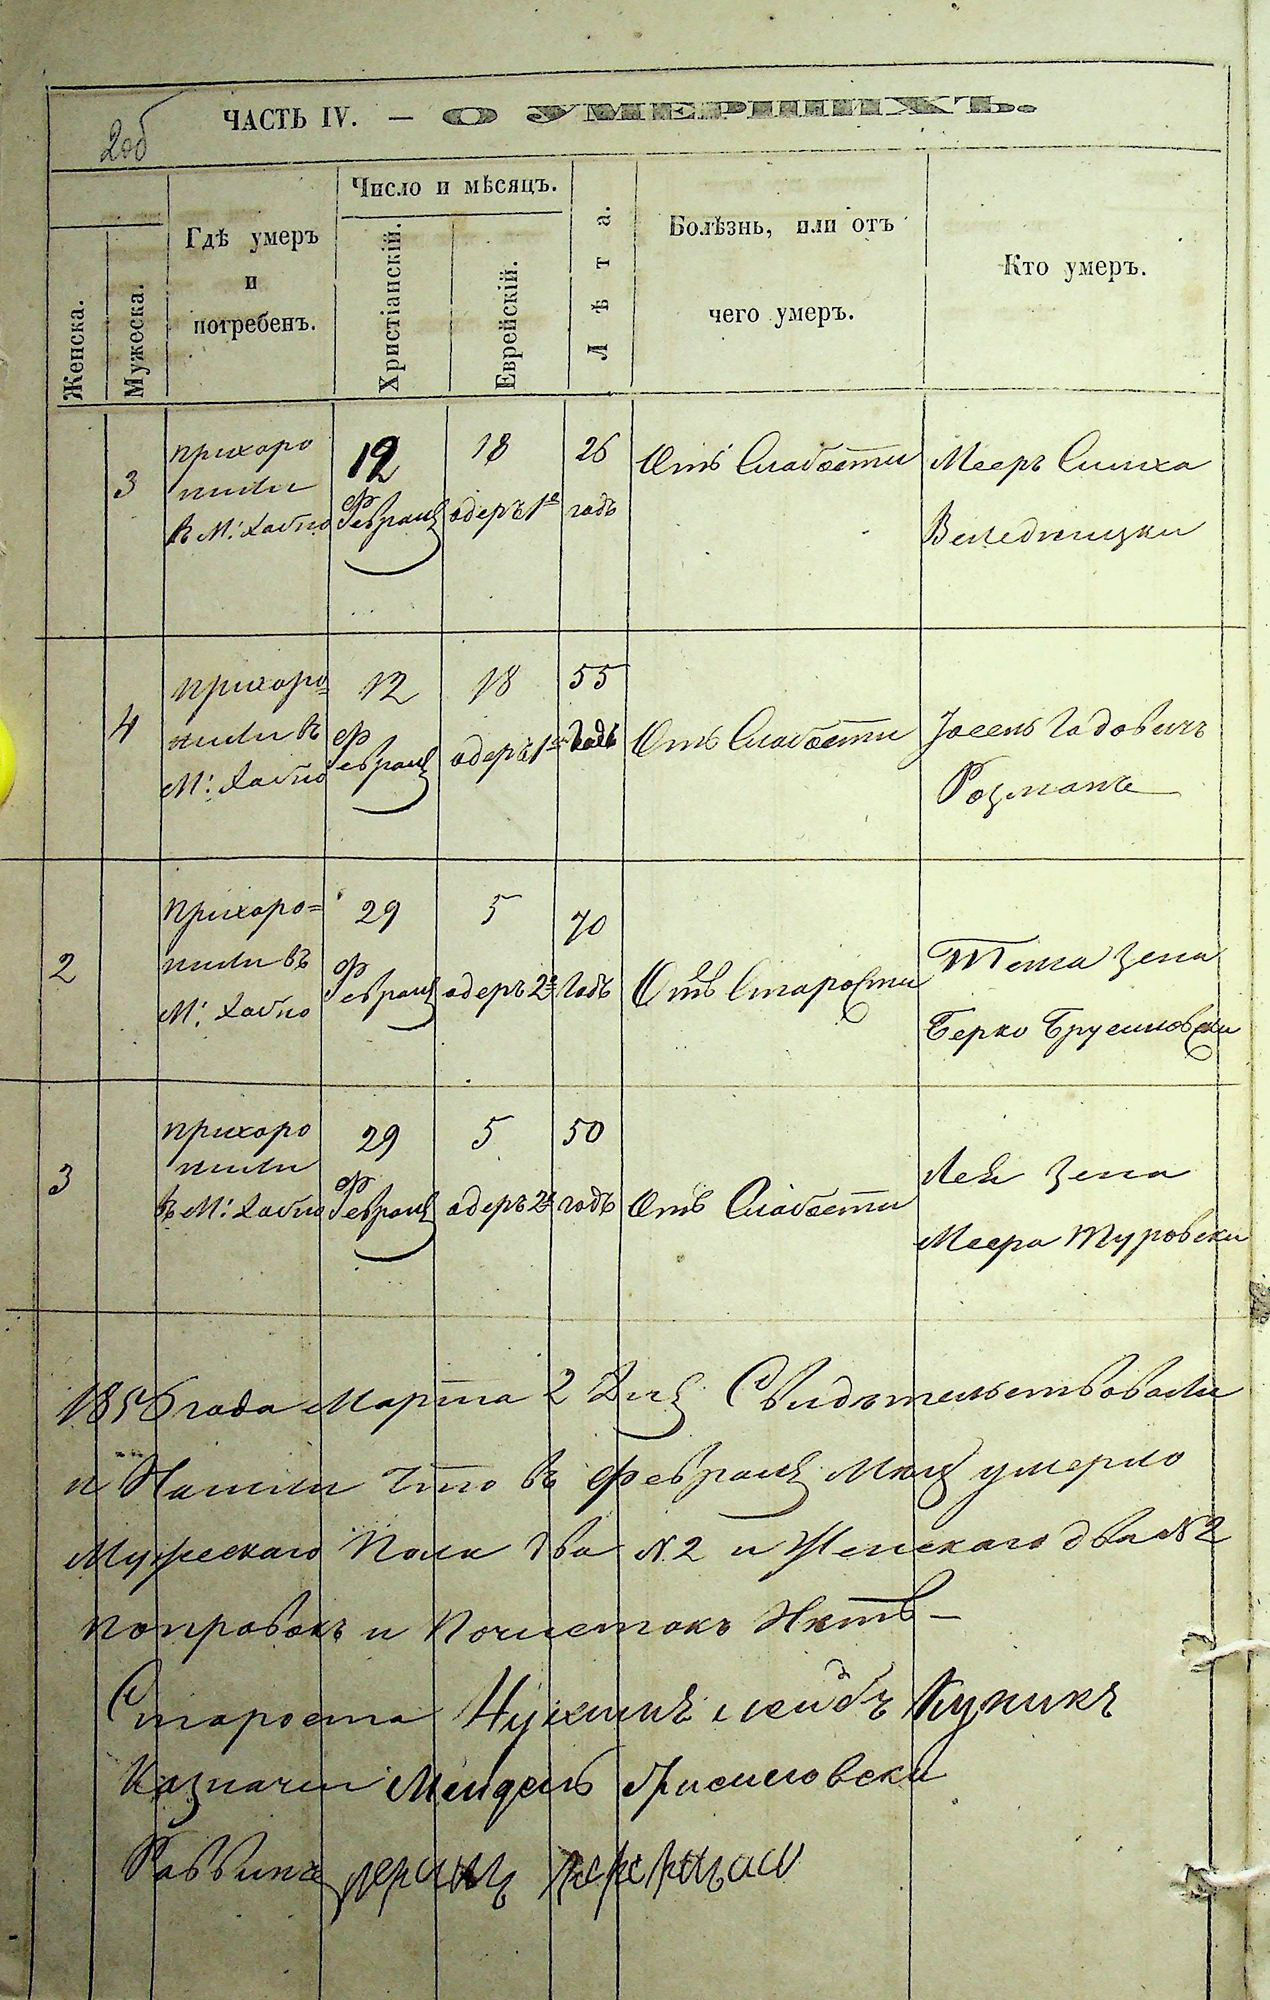 2об
ЧАСТЬ IV. — О УМЕРШИХЪ.
Женска.
Мужеска.
Гдѣ умеръ
и
погребенъ.
Число и мѣсяцъ.
Христіанскій.
Еврейскій.
Лѣта.
Болѣзнь, или отъ
чего умеръ.
Кто умеръ.
3
прихоро
нили
въ М: Хабно
12
Февраля
18
адеръ 1го
26
годъ
Отъ Слабости
Мееръ Симха
Веледницки
4
прихоро=
нили въ
М: Хабно
12
Февраля
18
адеръ 1го
55
Годъ
Отъ Слабости
Іосель Гадовичъ
Розманъ
2
прихоро=
нили въ
М: Хабно
29
Февраля
5
адеръ 2го
70
Годъ
Отъ Старости
жена
Берко Брусиловски
3
прихоро
нили
въ М: Хабно
29
Февраля
5
адеръ 2го
50
годъ
Отъ Слабости
Лея жена
Меера Туровски
1856 года Марта 2 Дня Свидѣтельствовали
и Нашли Что въ Февраля умерло
Мужескаго Пола два N.2 и Женскаго два N2
поправокъ и Почистокъ Нѣтъ—
Староста Нухимъ Лейбъ Куникъ
Казначей Мендель
Раввинъ